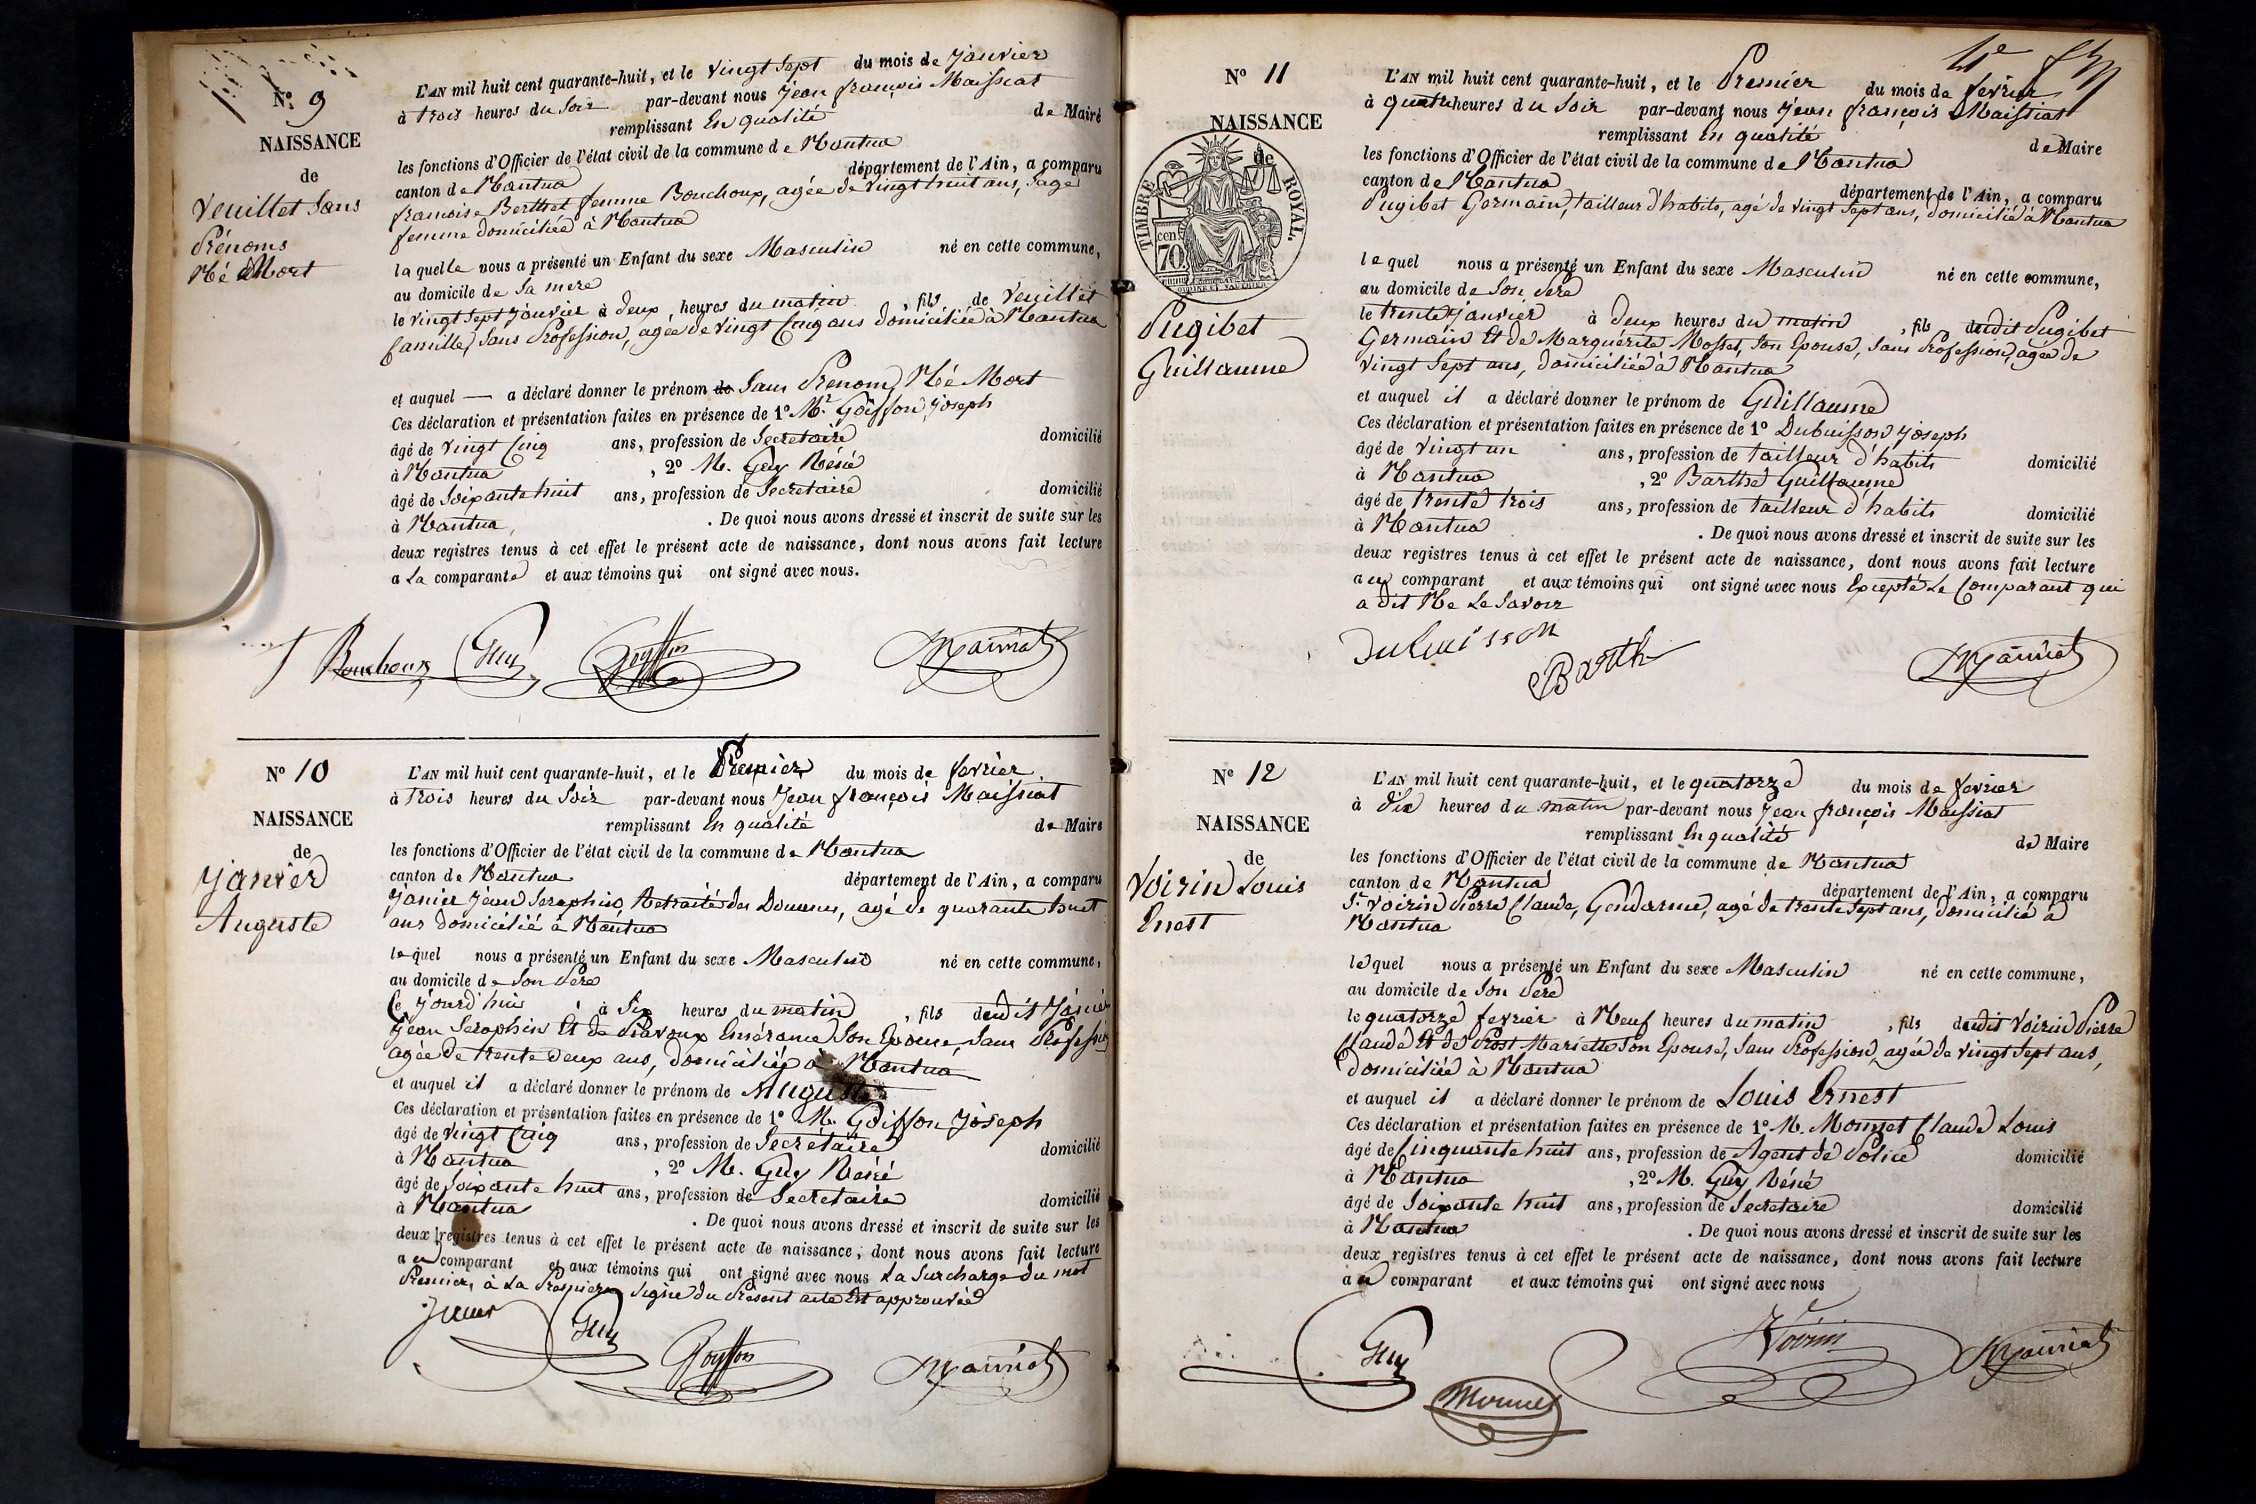 N° 9
NAISSANCE
de
Veuillet Sans
Prénoms
Né Mort
L'AN mil huit cent quarante-huit, et le Vingt Sept du mois de Janvier
à trois heures du Soir par-devant nous Jean françois Maissiat
remplissant En qualité de Maire
les fonctions d'Officier de l'état civil de la commune de Nantua
canton de Nantua département de l'Ain, a comparu
francoise Berthet femme Bouchoux, agée de vingt huit ans, Sage
femme domiciliée à Nantua
laquelle nous a présenté un Enfant du sexe Masculin né en cette commune,
au domicile de Sa mere
le vingt Sept Janvier à deux heures du matin, fils de Veuillet
Camille, Sans Profession, agée de vingt Cinq ans domiciliée à Nantua
et auquel — a déclaré donner le prénom de Sans Prenom, Né Mort
Ces déclaration et présentation faites en présence de 1° Mr. Goiffon Joseph
âgé de vingt Cinq ans, profession de Secretaire domicilié
à Nantua, 2° M. Guy Réné
âgé de Soixante huit ans, profession de Secretaire domicilié
à Nantua, . De quoi nous avons dressé et inscrit de suite sur les
deux registres tenus à cet effet le présent acte de naissance, dont nous avons fait lecture
a La comparante et aux témoins qui ont signé avec nous.
f Bouchoux Guy Goyffon Maissiat
N° 10
NAISSANCE
de
Janier
Auguste
L'AN mil huit cent quarante-huit, et le Premier du mois de fevrier.
à trois heures du Soir par-devant nous Jean françois Maissiat
remplissant En qualité de Maire
les fonctions d'Officier de l'état civil de la commune de Nantua
canton de Nantua département de l'Ain, a comparu
Janier Jean Seraphin, Retraité des Douanes, agé de quarante huit
ans domicilié à Nantua
lequel nous a présenté un Enfant du sexe Masculin né en cette commune,
au domicile de Son Pere
Ce Jourd'hui à Six heures du matin, fils dudit Janier
Jean Seraphin Et de Pravoux Emérance Son Epouse, Sans Profession
agée de trente deux ans, domiciliée à Nantua
et auquel il a déclaré donner le prénom de Auguste
Ces déclaration et présentation faites en présence de 1° M. Goiffon Joseph
âgé de vingt Cinq ans, profession de Secrétaire domicilié
à Nantua, 2° M. Guy Réné
âgé de Soixante huit ans, profession de Secretaire domicilié
à Nantua . De quoi nous avons dressé et inscrit de suite sur les
deux registres tenus à cet effet le présent acte de naissance, dont nous avons fait lecture
au comparant et aux témoins qui ont signé avec nous La Surcharge du mot
Premier, à La Premiere ligne du Présent acte Est approuvée
Janier Guy Goyffon Maissiat
4e
N° 11
NAISSANCE
de
TIMBRE ROYAL.
70 cen.
Pugibet
Guillaume
L'AN mil huit cent quarante-huit, et le Premier du mois de fevrier
à quatre heures du Soir par-devant nous Jean françois Maissiat
remplissant En qualité de Maire
les fonctions d'Officier de l'état civil de la commune de Nantua
canton de Nantua département de l'Ain, a comparu
Pugibet Germain, tailleur d'habits, agé de vingt Sept ans, domicilié à Nantua
lequel nous a présenté un Enfant du sexe Masculin né en cette commune,
au domicile de Son Pere
le trente Janvier à deux heures du matin, fils dudit Pugibet
Germain Et de Marguérite Mosset, Son Epouse, Sans Profession, agée de
vingt Sept ans, domiciliée à Nantua
et auquel il a déclaré donner le prénom de Guillaume
Ces déclaration et présentation faites en présence de 1° Dubuisson Joseph
âgé de vingt un ans, profession de tailleur d'habits domicilié
à Nantua, 2° Barthe Guillaume
âgé de trente trois ans, profession de tailleur d'habits domicilié
à Nantua . De quoi nous avons dressé et inscrit de suite sur les
deux registres tenus à cet effet le présent acte de naissance, dont nous avons fait lecture
au comparant et aux témoins qui ont signé avec nous Excepté Le Comparant qui
a dit Ne Le Savoir
Dubuisson
Barth Maissiat
N° 12
NAISSANCE
de
Voirin Louis
Ernest
L'AN mil huit cent quarante-huit, et le quatorze du mois de fevrier
à dix heures du matin par-devant nous Jean françois Maissiat
remplissant En qualité de Maire
les fonctions d'Officier de l'état civil de la commune de Nantua
canton de Nantua département de l'Ain, a comparu
Sr. Voirin Pierre Claude, Gendarme, agé de trente Sept ans, domicilié à
Nantua
lequel nous a présenté un Enfant du sexe Masculin né en cette commune,
au domicile de Son Pere
le quatorze fevrier à Neuf heures du matin, fils dudit Voirin Pierre
Claude Et de Prost Mariette Son Epouse, Sans Profession, agée de vingt Sept ans,
domiciliée à Nantua
et auquel il a déclaré donner le prénom de Louis Ernest
Ces déclaration et présentation faites en présence de 1° M. Monnet Claude Louis
âgé de Cinquante huit ans, profession de Agent de Police domicilié
à Nantua, 2° M. Guy Réné
âgé de Soixante huit ans, profession de Secretaire domicilié
à Nantua . De quoi nous avons dressé et inscrit de suite sur les
deux registres tenus à cet effet le présent acte de naissance, dont nous avons fait lecture
au comparant et aux témoins qui ont signé avec nous
Guy Voirin Maissiat
Monnet